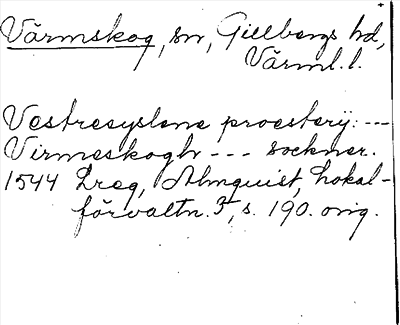 Värmskog, sn, Gillbergs hd,
Värml. l.
Vestresyslene proesterij: ---
Virmeskogh --- sockner.
1544 Lreg, Almquist, Lokal-
förvaltn. 3, s. 190. orig.